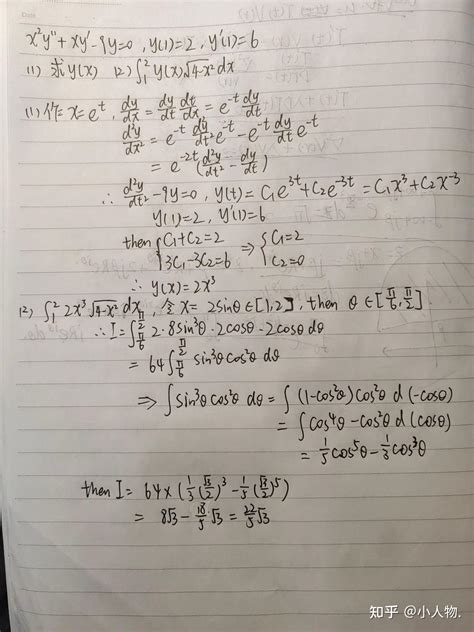 x²y''+xy'-9y=0, y(1)=2, y'(1)=6
(1) 求y(x) (2) ∫₁² y(x)√4-x² dx
(1) 作x=e^t, dy/dx = dy/dt dt/dx = e^-t dy/dt
d²y/dx² = e^-t d²y/dt² e^-t - e^-t dy/dt e^-t
= e^-2t (d²y/dt² - dy/dt)
∴ d²y/dt² - 9y=0, y(t) = C₁e^3t + C₂e^-3t = C₁x³ + C₂x^-3
y(1)=2, y'(1)=6
then { C₁+C₂=2 3C₁-3C₂=6 ⇒ { C₁=2 C₂=0
∴ y(x) = 2x³
(2) ∫₁² 2x³√4-x² dx, 令 x= 2sinθ∈[1,2], then θ∈[π/6, π/2]
∴ I = ∫_{π/6}^{π/2} 2·8sin³θ·2cosθ·2cosθ dθ
= 64∫_{π/6}^{π/2} sin³θcos²θ dθ
⇒ ∫sin³θcos²θ dθ = ∫(1-cos²θ)cos²θ d(-cosθ)
= ∫cos⁴θ-cos²θ d(cosθ)
= 1/5 cos⁵θ - 1/3 cos³θ
then I = 64×(1/3(√3/2)³ - 1/5(√3/2)⁵)
= 8√3 - 18/5 √3 = 22/5 √3
知乎 @小人物.